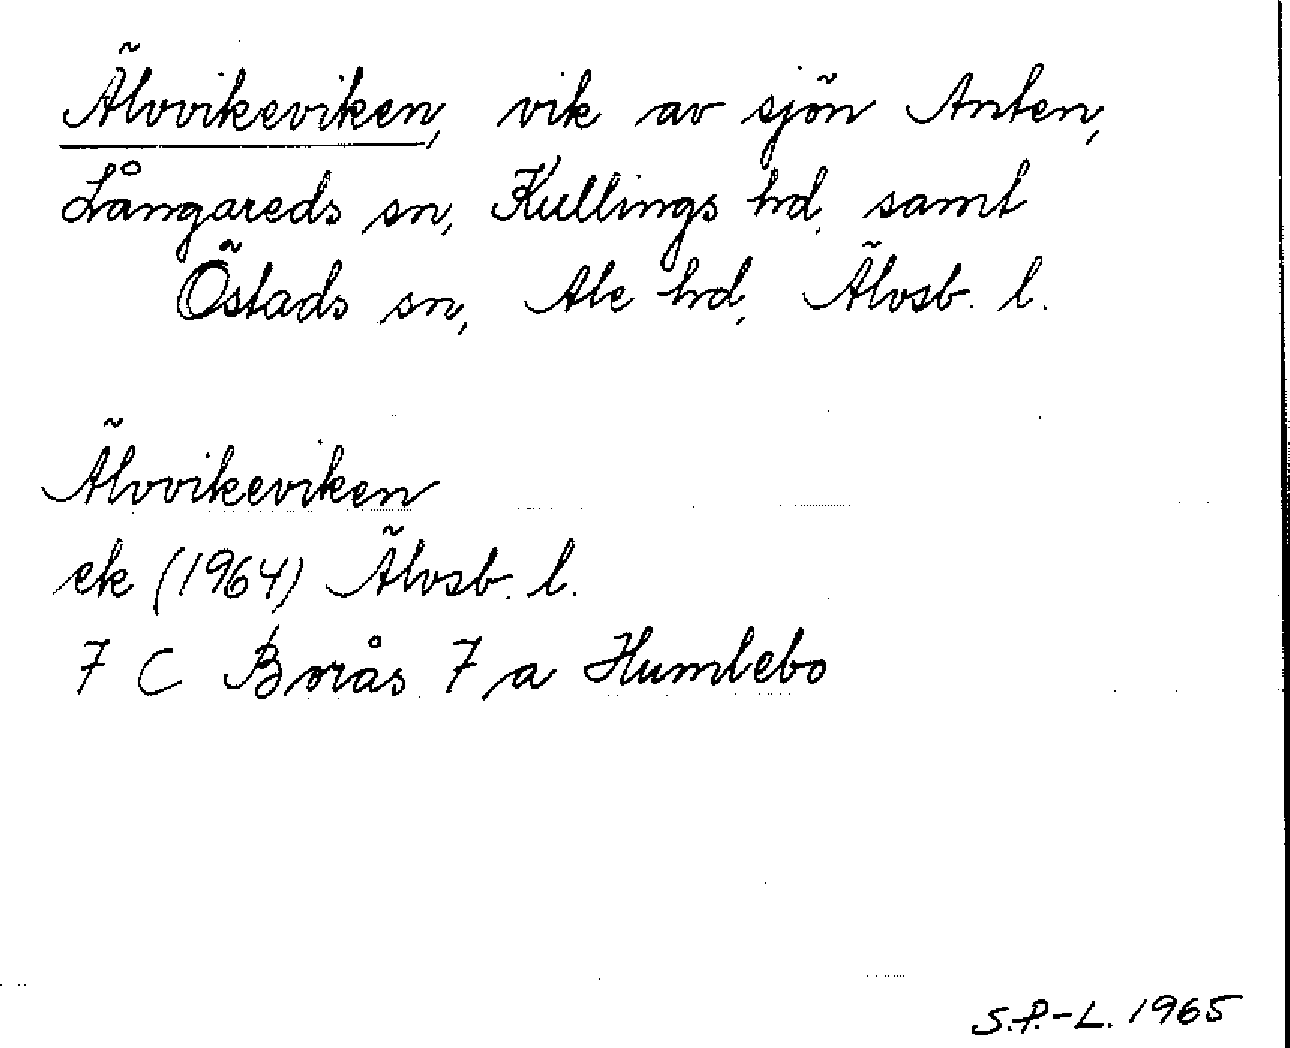 Älvvikeviken, vik av sjön Anten,
Långareds sn, Kullings hd, samt
Östads sn, Ale hd, Älvsb. l.
Älvvikeviken
ek (1964) Älvsb. l.
7 C Borås 7 a Humlebo
S.P.-L. 1965